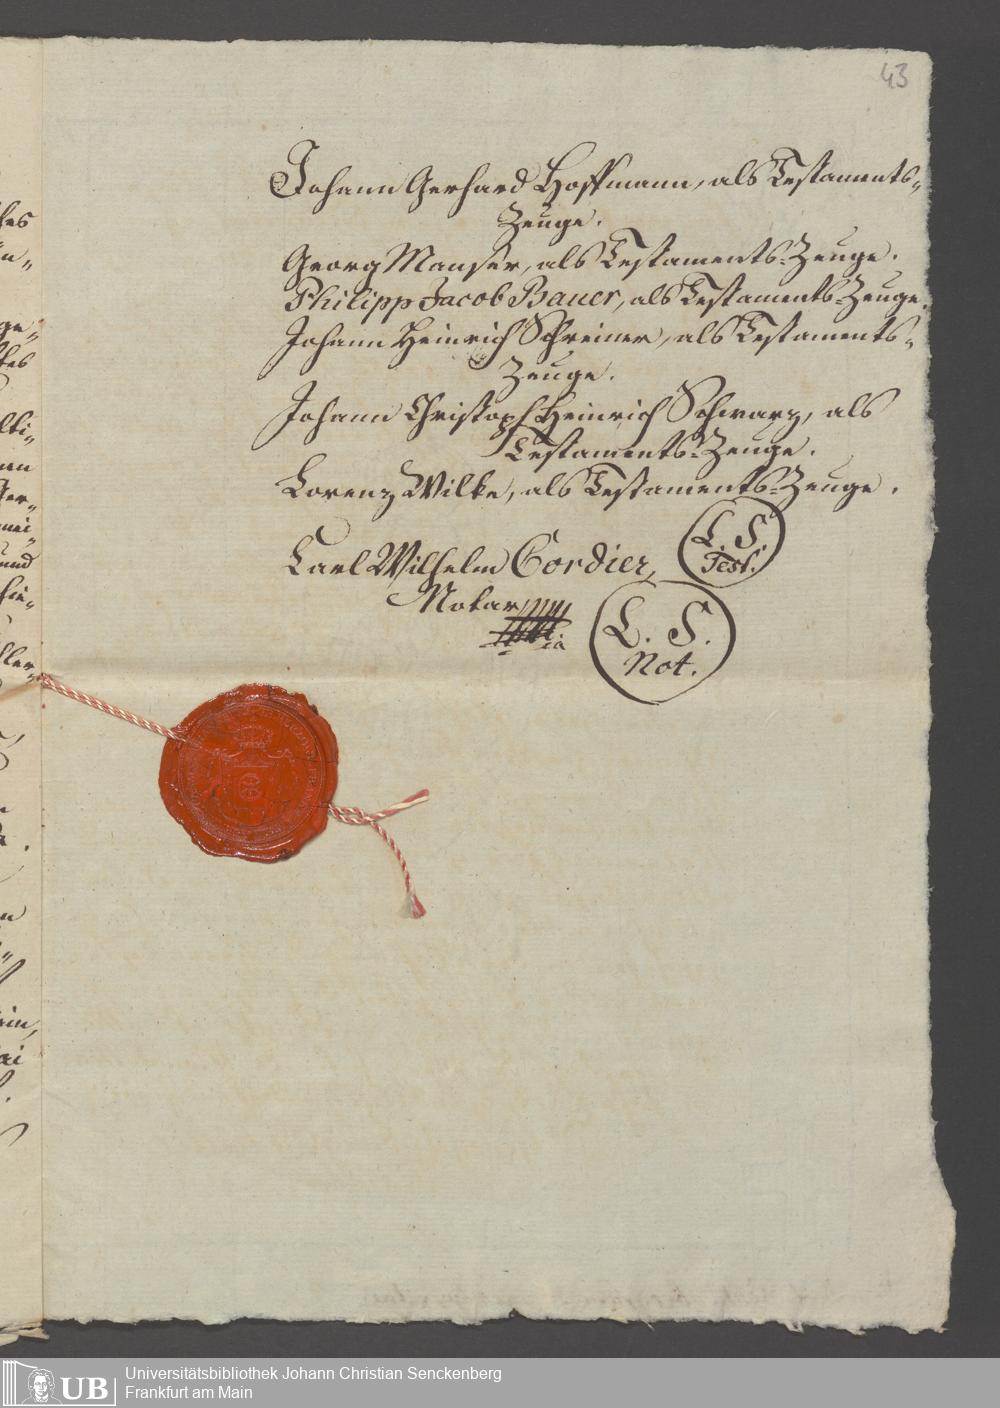 43
Johann Gerhard Hoffmann, als Testaments-
Zeuge.
Georg Manser, als Testaments-Zeuge.
Philipp Jacob Bauer, als Testaments-Zeuge.
Johann Heinrich Schreiner, als Testaments-
Zeuge.
Johann Christoph Heinrich Schwarz, als
Testaments-Zeuge.
Lorenz Wilke, als Testaments-Zeuge.
L. S.
Test.
Carl Wilhelm Cordier,
Notar
L. S.
Not.
Universitätsbibliothek Johann Christian Senckenberg
Frankfurt am Main
UB